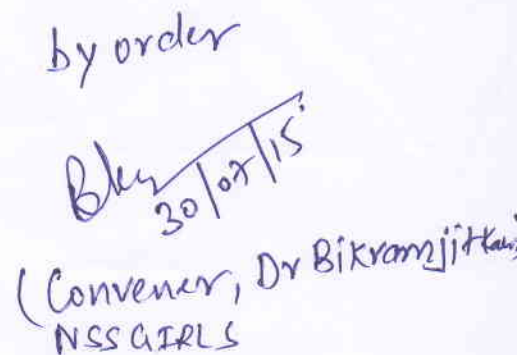 by order
30/07/15
(Convener, Dr Bikramjit Kaur)
NSS GIRLS